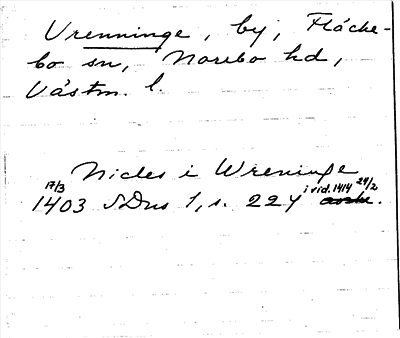 Vrenninge, by, Fläcke-
bo sn, Norrbo hd,
Västm. l.
Nicles i Wreninge
17/3 1403 SDns 1, s. 224 i vid. 1414 24/2.